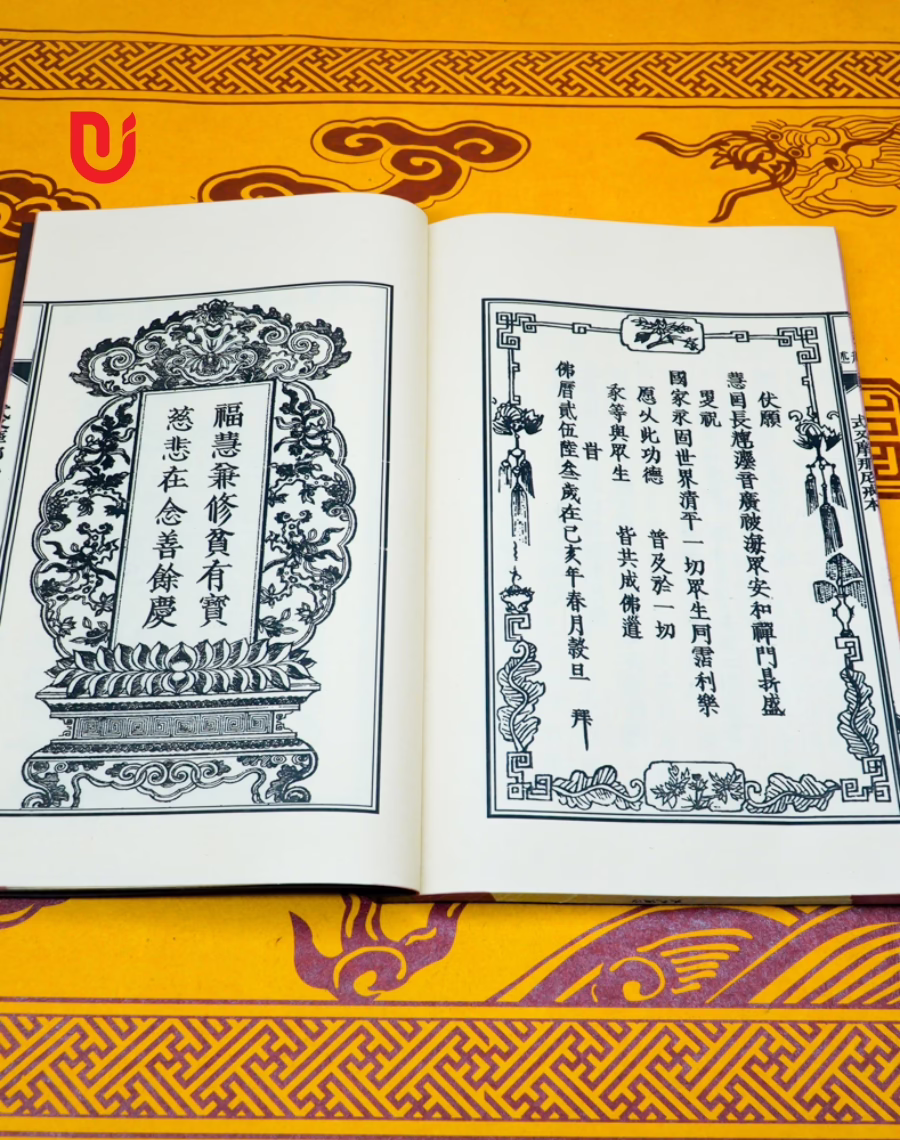 式叉摩那尼戒本
伏願
慧日長輝灋音廣被海眾安和禪門昇盛
更祝
國家永固世界清平一切眾生同霑利樂
愿以此功德 普及於一切
我等與眾生 皆共成佛道
旹
佛曆貳伍陸叁歲在己亥年春月穀旦 拜
福慧兼修貧有寶
慈悲在念善餘慶